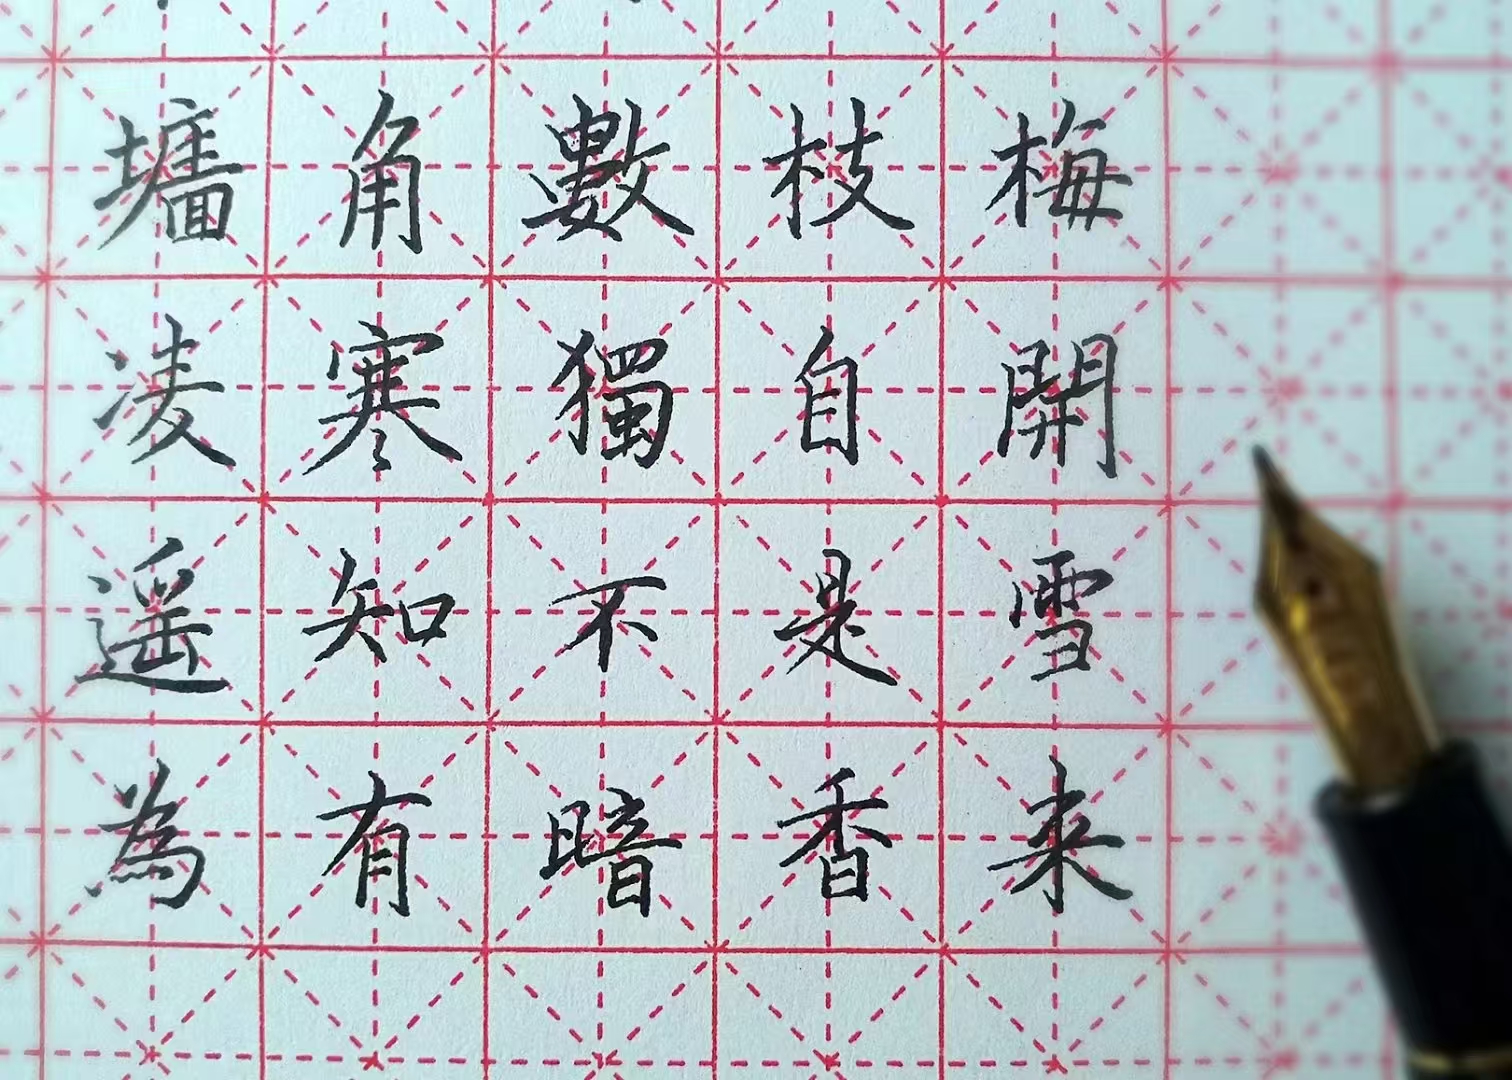 墻角數枝梅
凌寒獨自開
遥知不是雪
為有暗香来